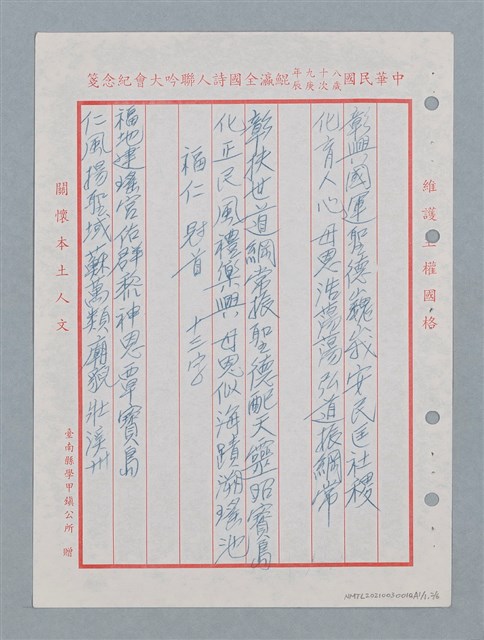 中華民國八十九年歲次庚辰鯤瀛全國詩人聯吟大會紀念箋
維護主權國格
彰興國運聖德巍峩安民匡社稷
化育人心母恩浩蕩弘道振綱常
彰扶世道綱常振聖德配天靈昭寶島
化正民風禮樂興母恩似海蹟溯瑤池
福仁 冠首 十三字
福地建瑤宮佑群黎神恩覃寶島
仁風揚聖域蘇萬類廟貌壯溪州
關懷本土人文
臺南縣學甲鎮公所 贈